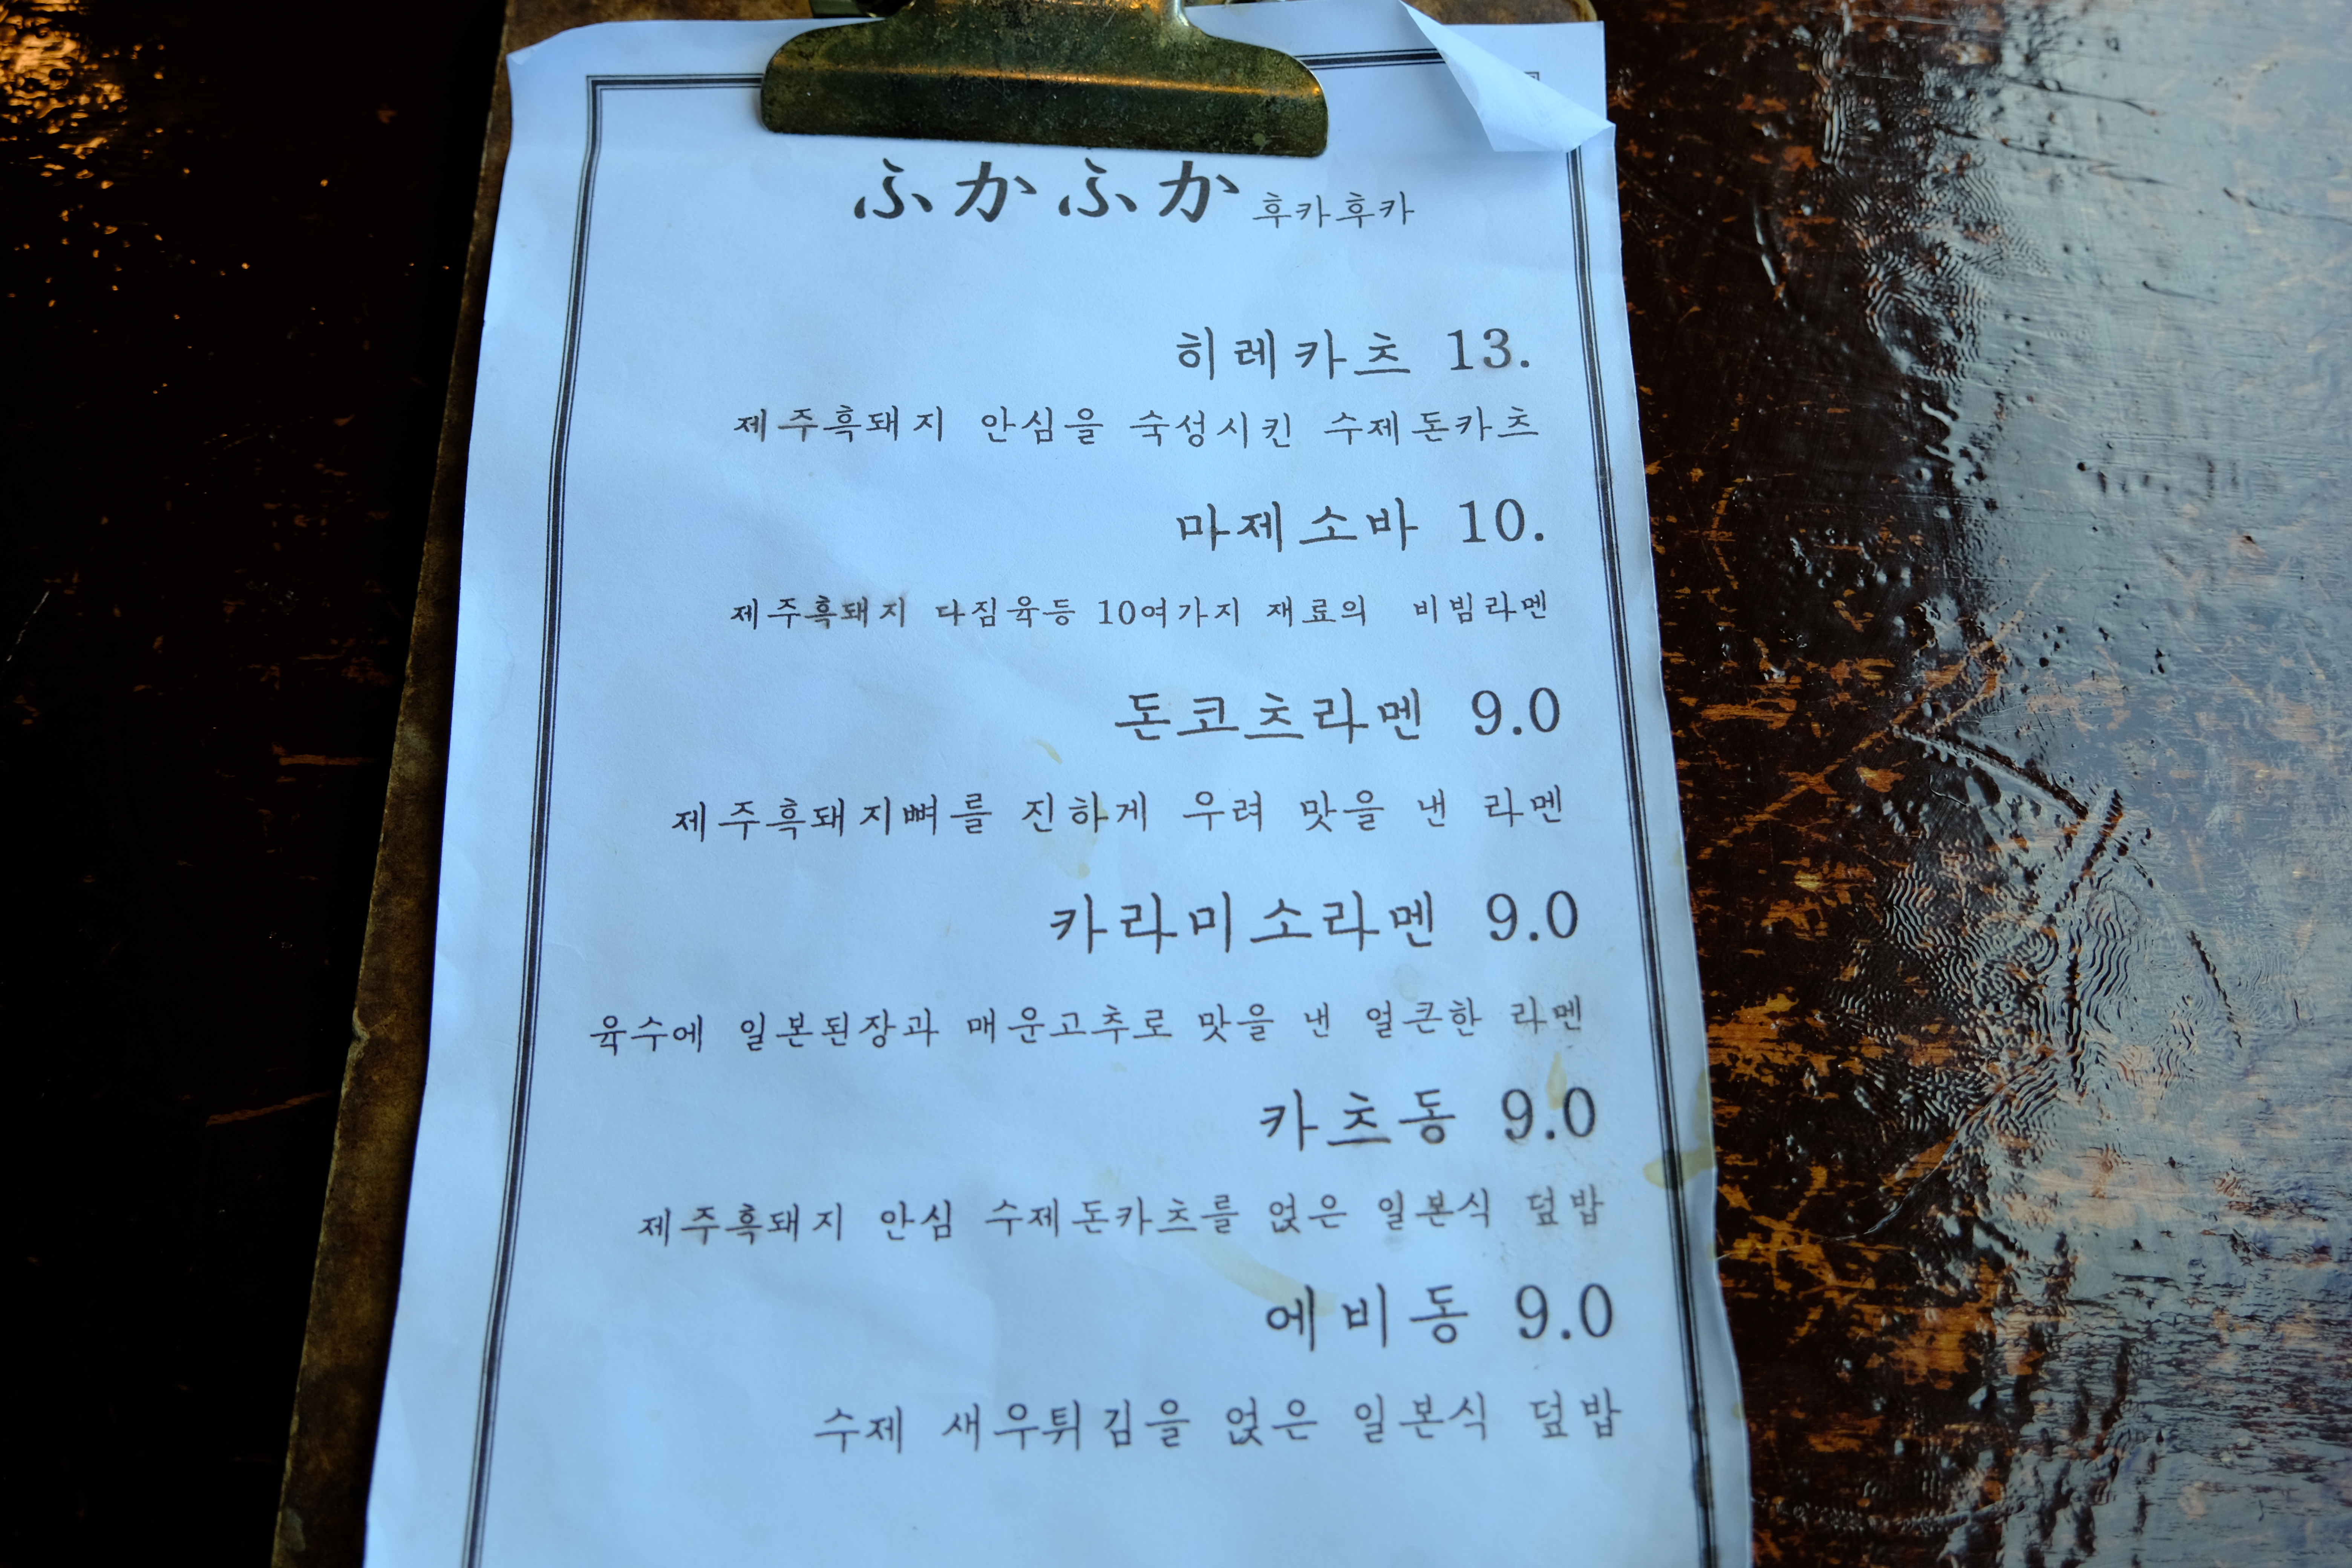 ふかふか 후카후카
히레카츠 13.
제주흑돼지 안심을 숙성시킨 수제돈카츠
마제소바 10.
제주흑돼지 다짐육등 10여가지 재료의 비빔라멘
돈코츠라멘 9.0
제주흑돼지뼈를 진하게 우려 맛을 낸 라멘
카라미소라멘 9.0
육수에 일본된장과 매운고추로 맛을 낸 얼큰한 라멘
카츠동 9.0
제주흑돼지 안심 수제돈카츠를 얹은 일본식 덮밥
에비동 9.0
수제 새우튀김을 얹은 일본식 덮밥